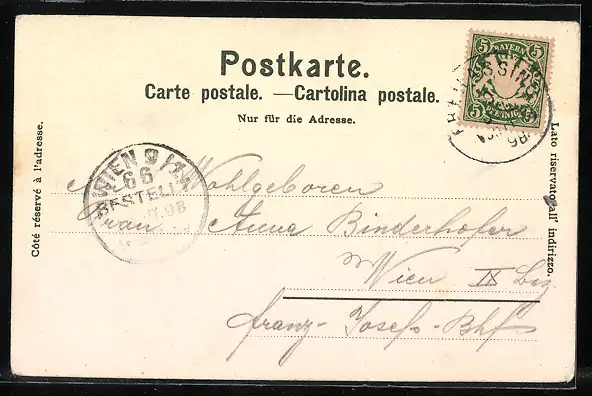 Postkarte.
Carte postale. — Cartolina postale.
Nur für die Adresse.
Côté réservé à l'adresse.
Lato riservato all' indirizzo.
5 BAYERN 5
PFENNIG
WIEN 9/
66
BESTELLT
98
Wohlgeboren
Frau Anna Binderhofer
Wien IX Bez
Franz-Josefs-Bhf